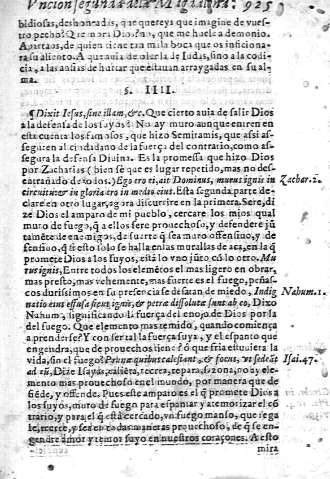 Vncion segunda de la Magdalena. 925
bidiosas, deshonradas, que quereys que imagine de vues-
tro pecho? Que mora Dios? no, que me huele a demonio.
Apartaos, de quien tiene tan mala boca que os inficiona
su aliento. A que auia de oler la de Iudas, sino a la codi-
cia, a las ansias de hurtar que estauan arraygadas en su al-
ma.
§. IIII.
¶Dixit Iesus, sine illam, &c. Que cierto auia de salir Dios
a la defensa de los suyos? No ay muro aunque entren en
esta cuenta los famosos, que hizo Semiramis, que assi ase-
guren al ciudadano de la fuerça del contrario, como as-
segura la defensa Diuina. Es la promessa que hizo Dios
por Zacharias (bien sè que es lugar repetido, mas no des-
entrañado de todos.) Ego ero ei, ait Dominus, murus ignis in
circuitu: & in gloria ero in medio eius. Esta segunda parte de-
clarè en otro lugar, agora discurrire en la primera. Serè, di
ze Dios el amparo de mi pueblo, cercare los mios qual
muro de fuego, q̃ a ellos serè prouechoso, y defenderè jũ
tamẽte de enemigos, de suerte q̃ sea muro offensiuo, y de
fensiuo, q̃ si esto solo se halla en las murallas de aca, en la q̃
promete Dios a los suyos, està lo vno jũto cõ lo otro. Mu
rus ignis, Entre todos los elemẽtos el mas ligero en obrar,
mas presto, mas vehemente, mas fuerte es el fuego, peñas-
cos durissimos en su presencia se desatan de miedo, Indig
natio eius effusa sicut ignis, & petræ dissolutæ sunt ab eo, Dixo
Nahum, significando la fuerça del enojo de Dios por la
del fuego. Que elemento mas temido, quando comiença
a prenderse? Y con ser tal la fuerça suya, y el espanto que
engendra, que de prouechos tiene? ò que fria estuuiera la
vida, sin el fuego? Prunæ quibus calefiant, & focus, vt sedeãt
ad eũ, Dize Isayas, calièta, recrea, repara, sazona, no ay ele
mento mas prouechoso en el mundo, por manera que de
fiẽde, y offende. Pues este amparo es el q̃ promete Dios a
los suyos, muro de fuego para espantar y atemorizar el cõ
trario, y para el q̃ està cercado, vn fuego manso, que rega
le, recree, y sea en tantas maneras prouechoso, de q̃ se en-
gendre amor y temor suyo en nuestros coraçones. A esto
mira
Zachar. 2.
Nahum. 1.
Isai. 47.